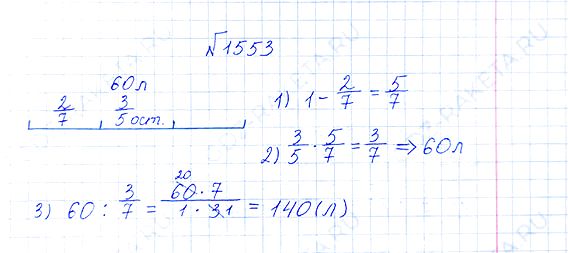 №1553
60 л
2/7 3/5 ост.
1) 1 - 2/7 = 5/7
2) 3/5 · 5/7 = 3/7 ⇒ 60 л
3) 60 : 3/7 = 60 · 7 / 1 · 3 1 = 140 (л)
20